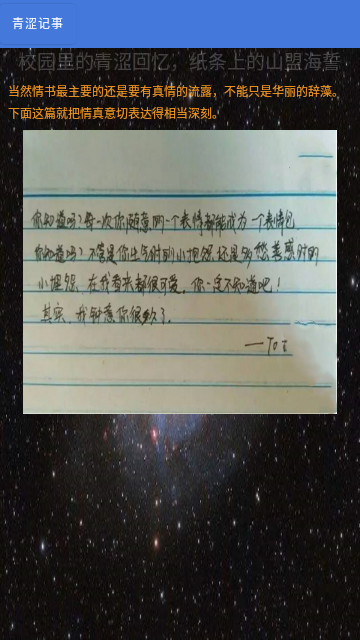 青涩记事
校园里的青涩回忆，纸条上的山盟海誓
当然情书最主要的还是要有真情的流露，不能只是华丽的辞藻。
下面这篇就把情真意切表达得相当深刻。
你知道吗？每一次你随意的一个表情都能成为一个表情包
你知道吗？不管是你生气时的小抱怨还是多愁善感时的
小埋怨，在我看来都很可爱，你一定不知道吧！
其实，我钟意你很久了。
—To z